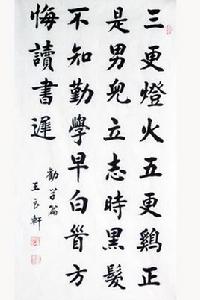 三更燈火五更鷄正
是男兒立志時黑髮
不知勤學早白首方
悔讀書遲
勸学篇